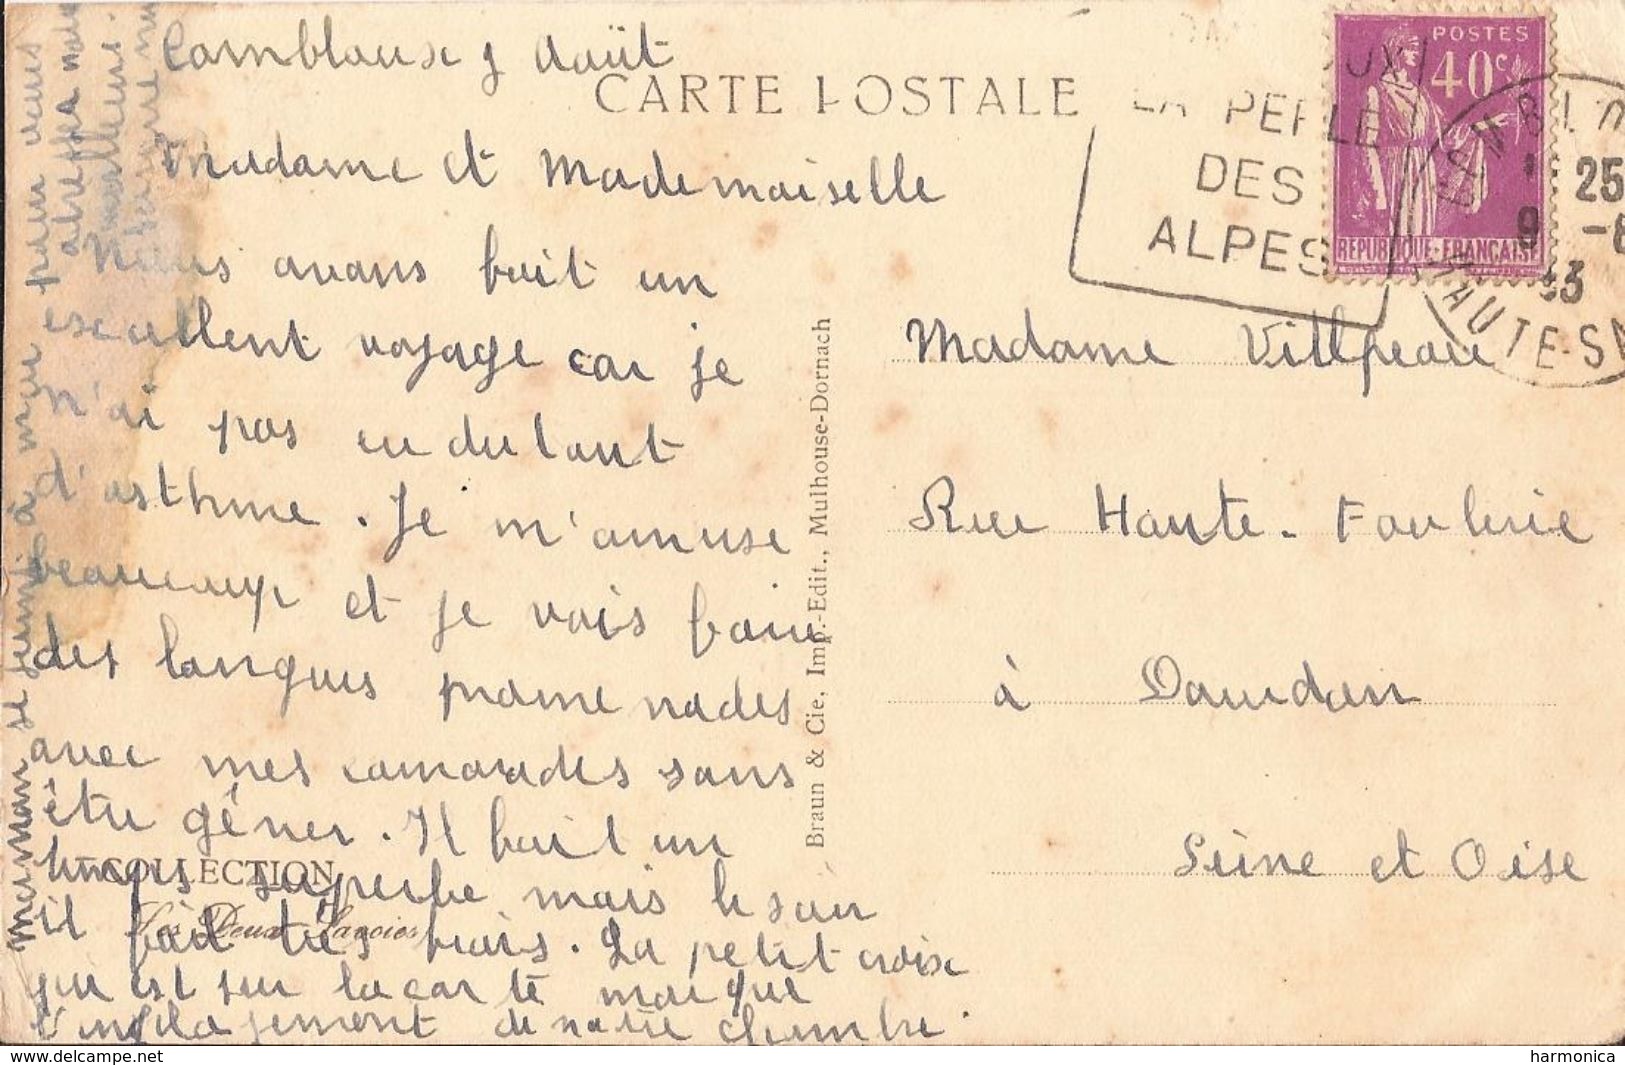 Comblouse 9 Août
CARTE POSTALE
Madame et Mademoiselle
Nous avons fait un
escellent voyage car je
n'ai pas eu du tout
d'asthme. Je m'amuse
beaucoup et je vais faire
des longues promenades
avec mes camarades sans
être gêner. Il fait un
temps superbe mais le soir
il fait très frais. La petit croix
qui est sur la carte marque
l'emplacement de notre chambre.
COLLECTION
Les Deux Savoies
maman se joint à moi pour vous
Braun & Cie, Imp.-Edit., Mulhouse-Dornach
LA PERLE
DES
ALPES
POSTES
40c
REPUBLIQUE-FRANÇAISE
25
9 -8
33
HAUTE-SA
Madame Villpeau
Rue Haute-Foulerie
à Dourdan
Seine et Oise
delcampe.net
harmonica